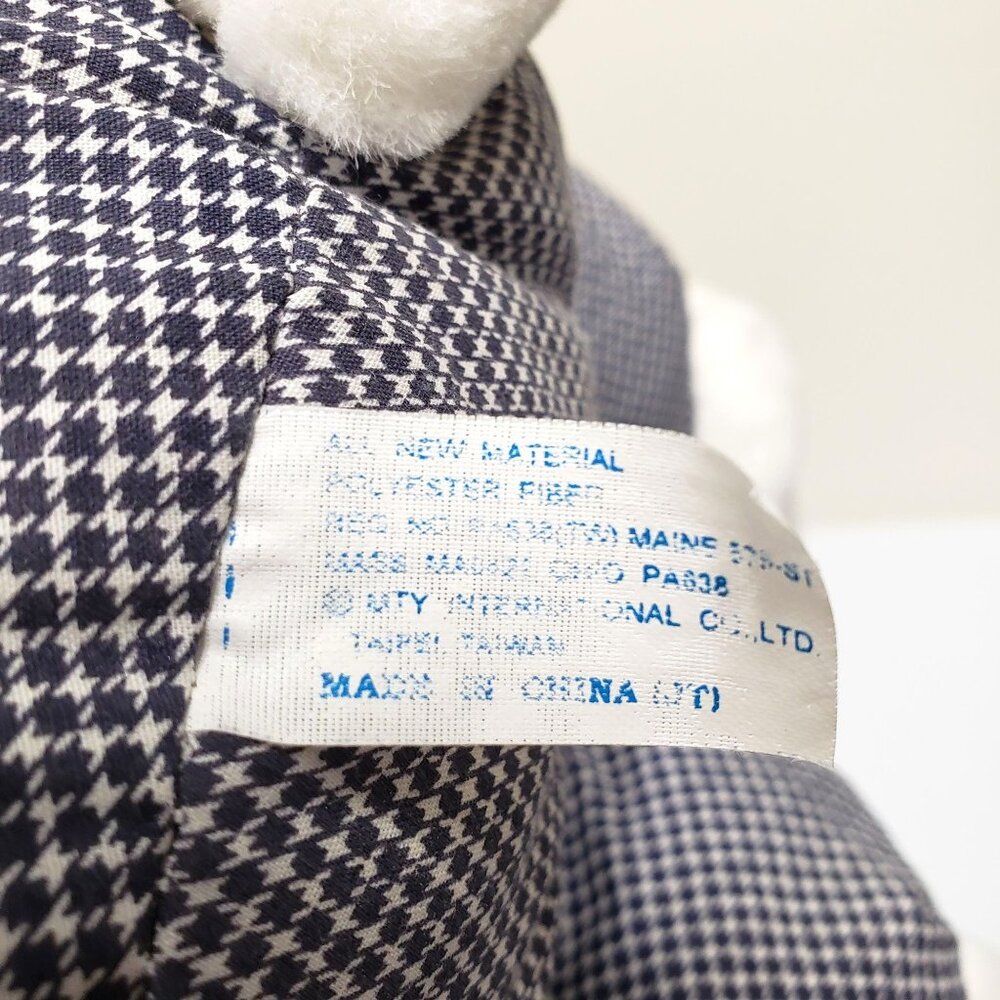 ALL NEW MATERIAL
POLYESTER FIBER
REG NO PA638(TW) MAINE
MASS OHIO PA638
© MTY INTERNATIONAL CO.,LTD.
TAIPEI TAIWAN
MADE IN CHINA (JT)